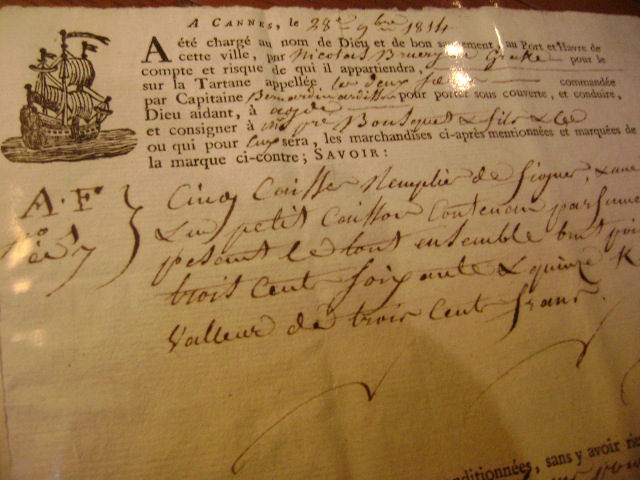 A CANNES, le 28e 9bre 1814
A été chargé au nom de Dieu et de bon sauvement, au Port et Havre de
cette ville, par Nicolas pour le
compte et risque de qui il appartiendra,
sur la Tartane appellée les deux commandée
par Capitaine pour porter sous couverte, et conduire,
Dieu aidant, à
et consigner à Bousquet & fils & Cie
ou qui pour eux sera, les marchandises ci-après mentionnées et marquées de
la marque ci-contre; SAVOIR:
A.F
7
Cinq Caisses Remplies de figues, & une
petit Caisson Contenant parfums
pesant le tout ensemble brut
trois Cent Soixante & quinze K
Valleur de trois Cent francs.
conditionnées, sans y avoir